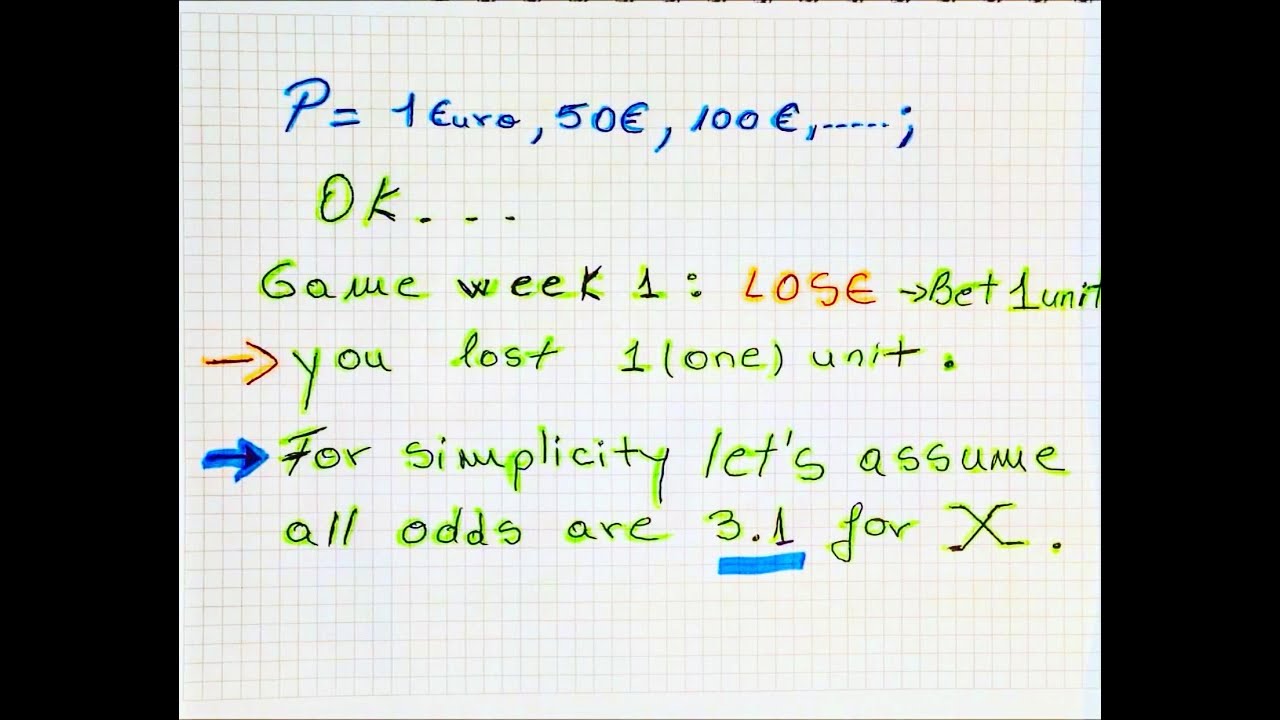 P = 1 Euro, 50€, 100€, .....;
OK...
Game week 1: LOSE → Bet 1 unit
→ you lost 1 (one) unit.
→ For simplicity let's assume
all odds are 3.1 for X.